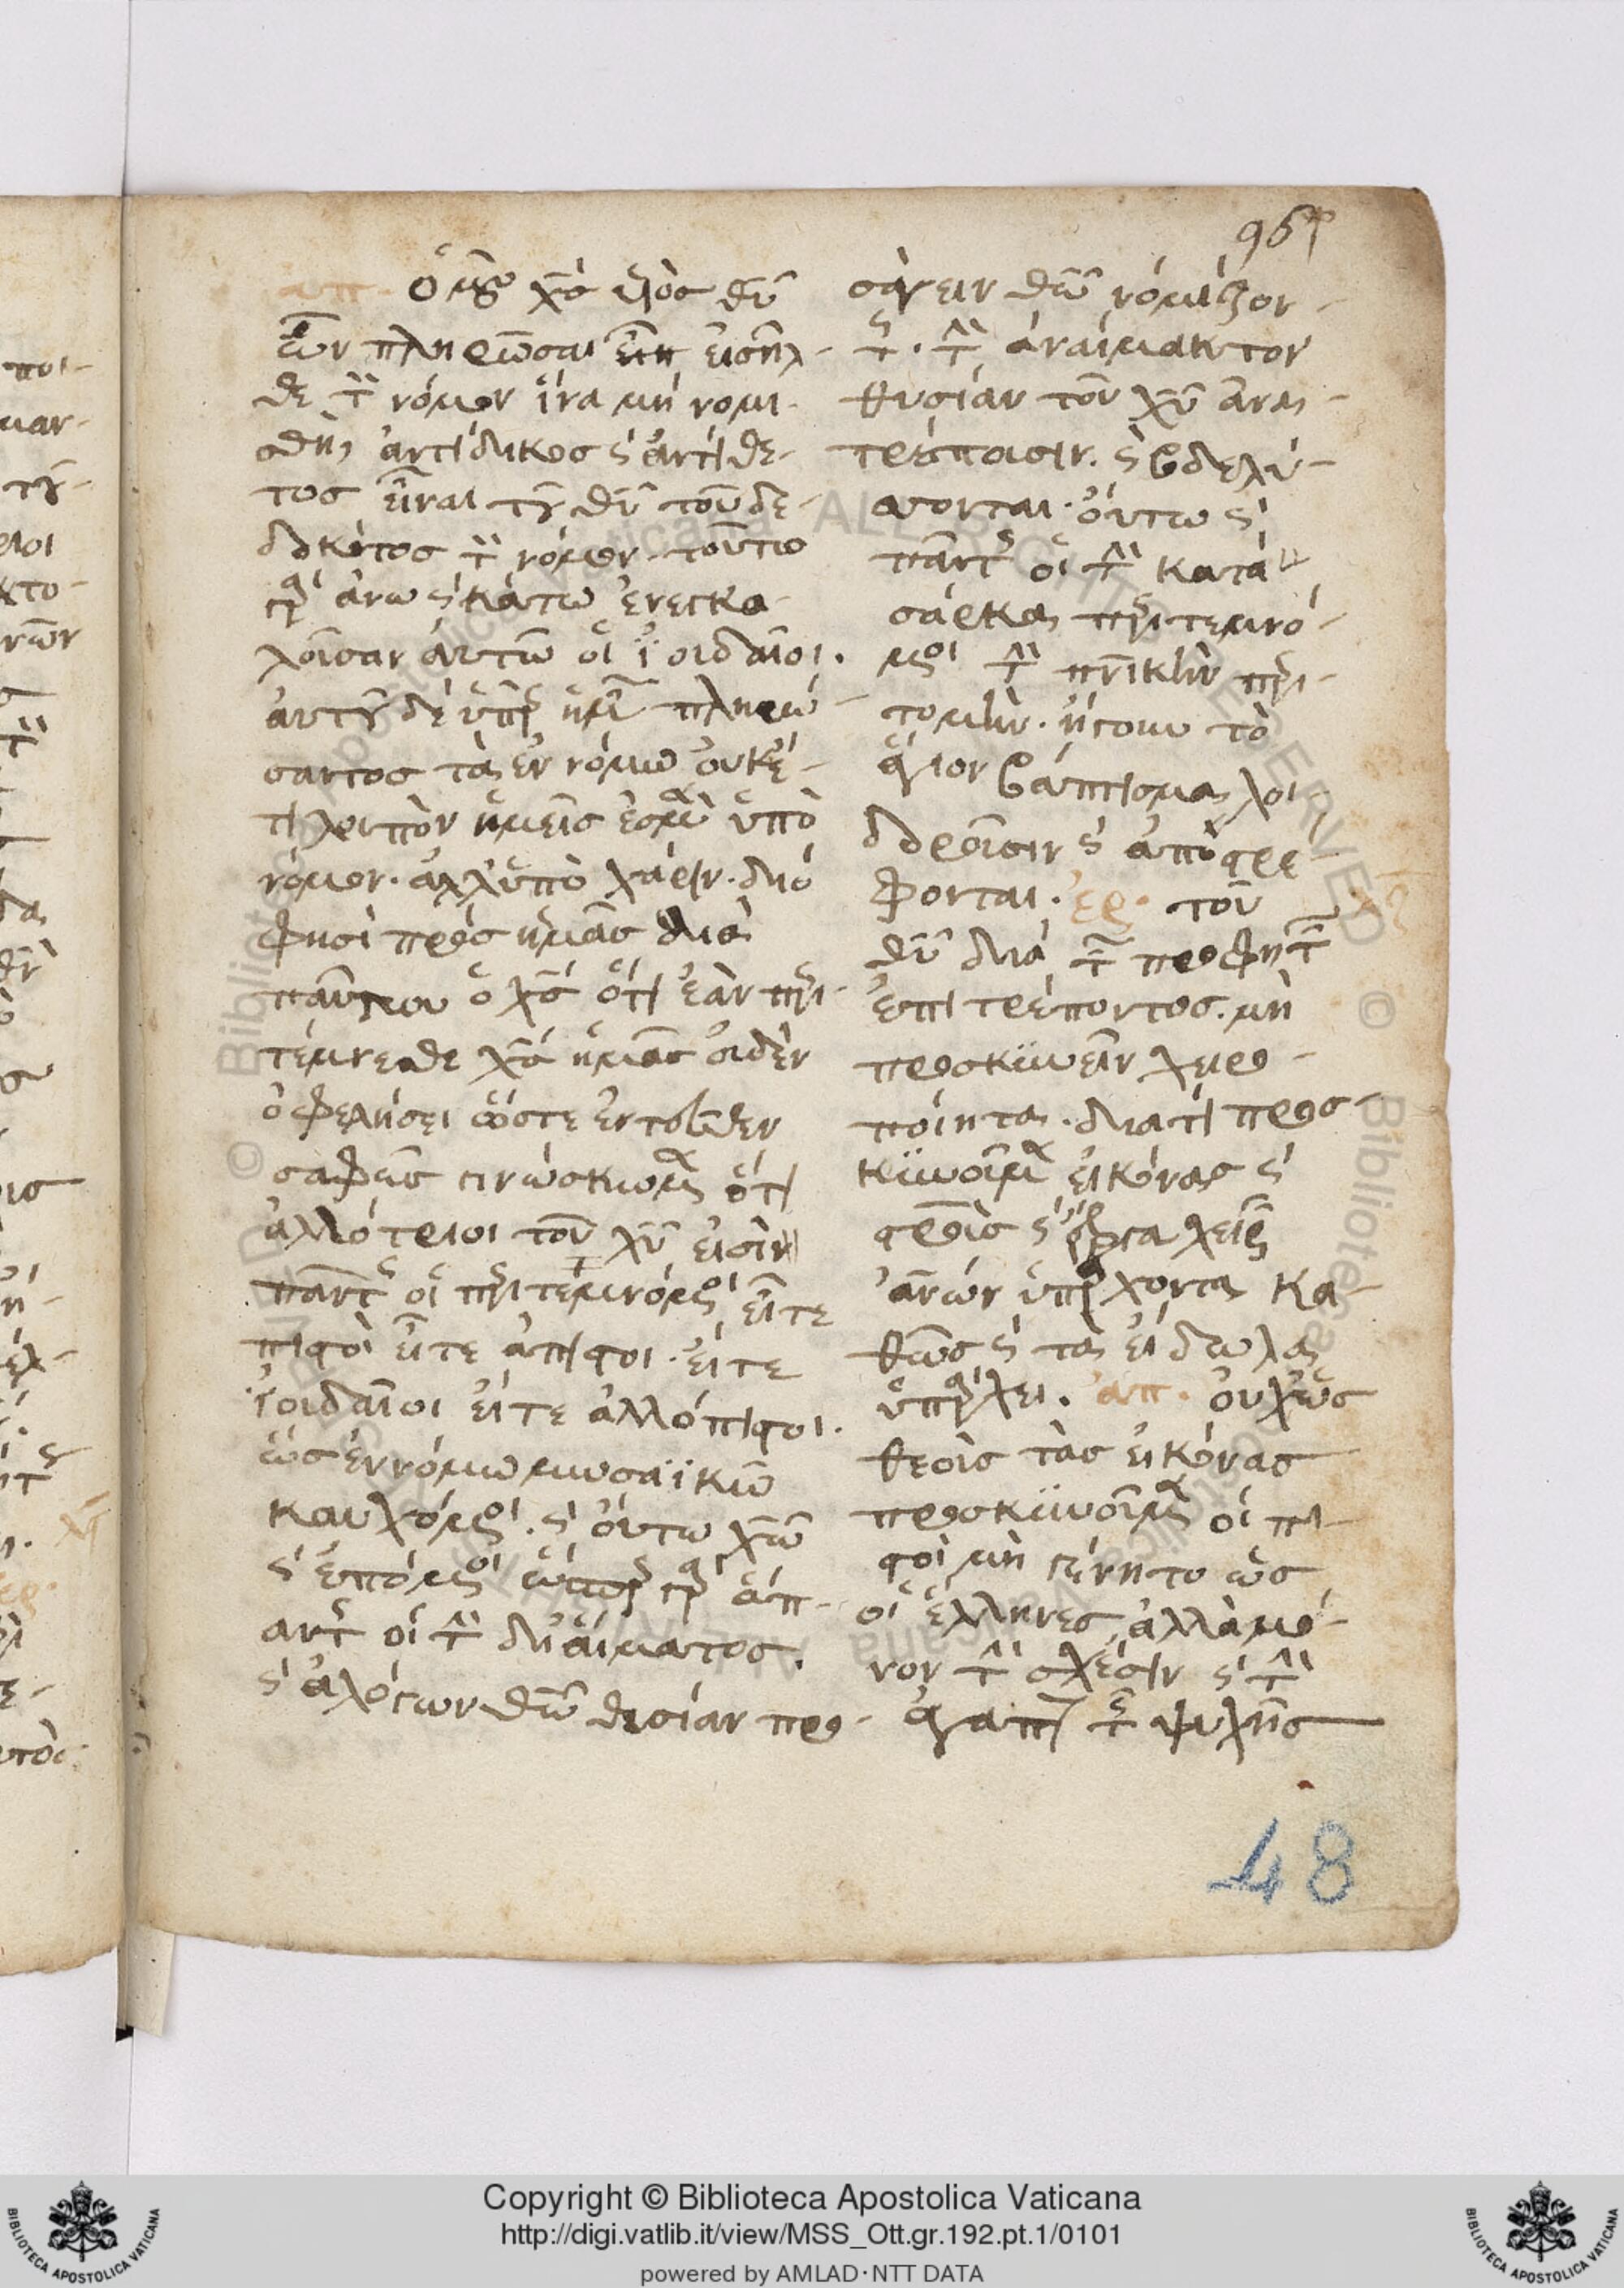 ὁ μὲν χς υἱὸς θυ
ὢν πληρῶσαι εἰσῆλ-
θε τὸν νόμον ἵνα μὴ νομι-
σθῆ ἀντίδικος κ ἀντίθε-
τος εἶναι τοῦ θυ τοῦ δε-
δωκότος τὸν νόμον. τοῦτο
γὰρ ἄνω κ κάτω ἐνεκα-
λοῦσαν αὐτῶ οἱ ἰουδαῖοι.
αὐτοῦ δὲ ὑπὲρ ἡμῶν πληρώ-
σαντος τὰ ἐν νόμω οὐκέ-
τι λοιπὸν ἡμεῖς ἐσμὲν ὑπὸ
νόμον. ἀλλ' ὑπὸ χάριν. διό
φησι πρὸς ἡμᾶς διὰ
παύλου ὁ χς ὅτι ἐὰν περι-
τέμνεσθε χς ἡμᾶς οὐδὲν
ὀφελήσει ὥστε ἐντεῦθεν
σαφῶς γινώσκωμεν ὅτι
ἀλλότριοι τοῦ χυ εἰσὶν
πάντες οἱ περιτεμνόμενοι εἴτε
πιστοὶ εἴτε ἄπιστοι. εἴτε
ἰουδαῖοι εἴτε ἀλλόπιστοι.
ὡς ἐν νόμω μωσαϊκῶ
καυχόμενοι. κ οὕτω χω
κ ἑπόμενοι ὥσπερ γὰρ ἅπ-
αντες οἱ τὴν δι' αἵματος.
κ ἀλόγων θω θυσίαν προ-
σάγειν θω νόμιζον-
τες. τὴν ἀναίμακτον
θυσίαν τοῦ χυ ἀνα-
τρέπουσιν. κ βδελύ-
ονται. οὕτω κ
πάντες οἱ τὴν κατὰ
σάρκα περιτεμνό-
μενοι τὴν πνικὴν περι-
τομὴν. ἤγουν τὸ
ἅγιον βάπτισμα λοι-
δοροῦσιν κ ἀποστρέ-
φονται. ἐρ. τοῦ
θυ διὰ τῶν προφητῶν
ἐπιτρέποντος. μὴ
προσκυνεῖν χειρο-
ποίητα. διατί προσ-
κυνοῦμεν εἰκόνας κ
σταυροὺς κ ἔργα χειρῶν
ἀνων ὑπάρχοντα κα-
θὼς κ τὰ εἴδωλα
ὑπάρχει. ἀπ. οὐχ ὡς
θεοὺς τὰς εἰκόνας
προσκυνοῦμεν οἱ πι-
στοὶ μὴ γένητο ὡς
οἱ ἕλληνες ἀλλὰ μό-
νον τὴν σχέσιν κ τὴν
ἀγάπην τῆς ψυχῆς
48
Copyright © Biblioteca Apostolica Vaticana
http://digi.vatlib.it/view/MSS_Ott.gr.192.pt.1/0101
powered by AMLAD·NTT DATA